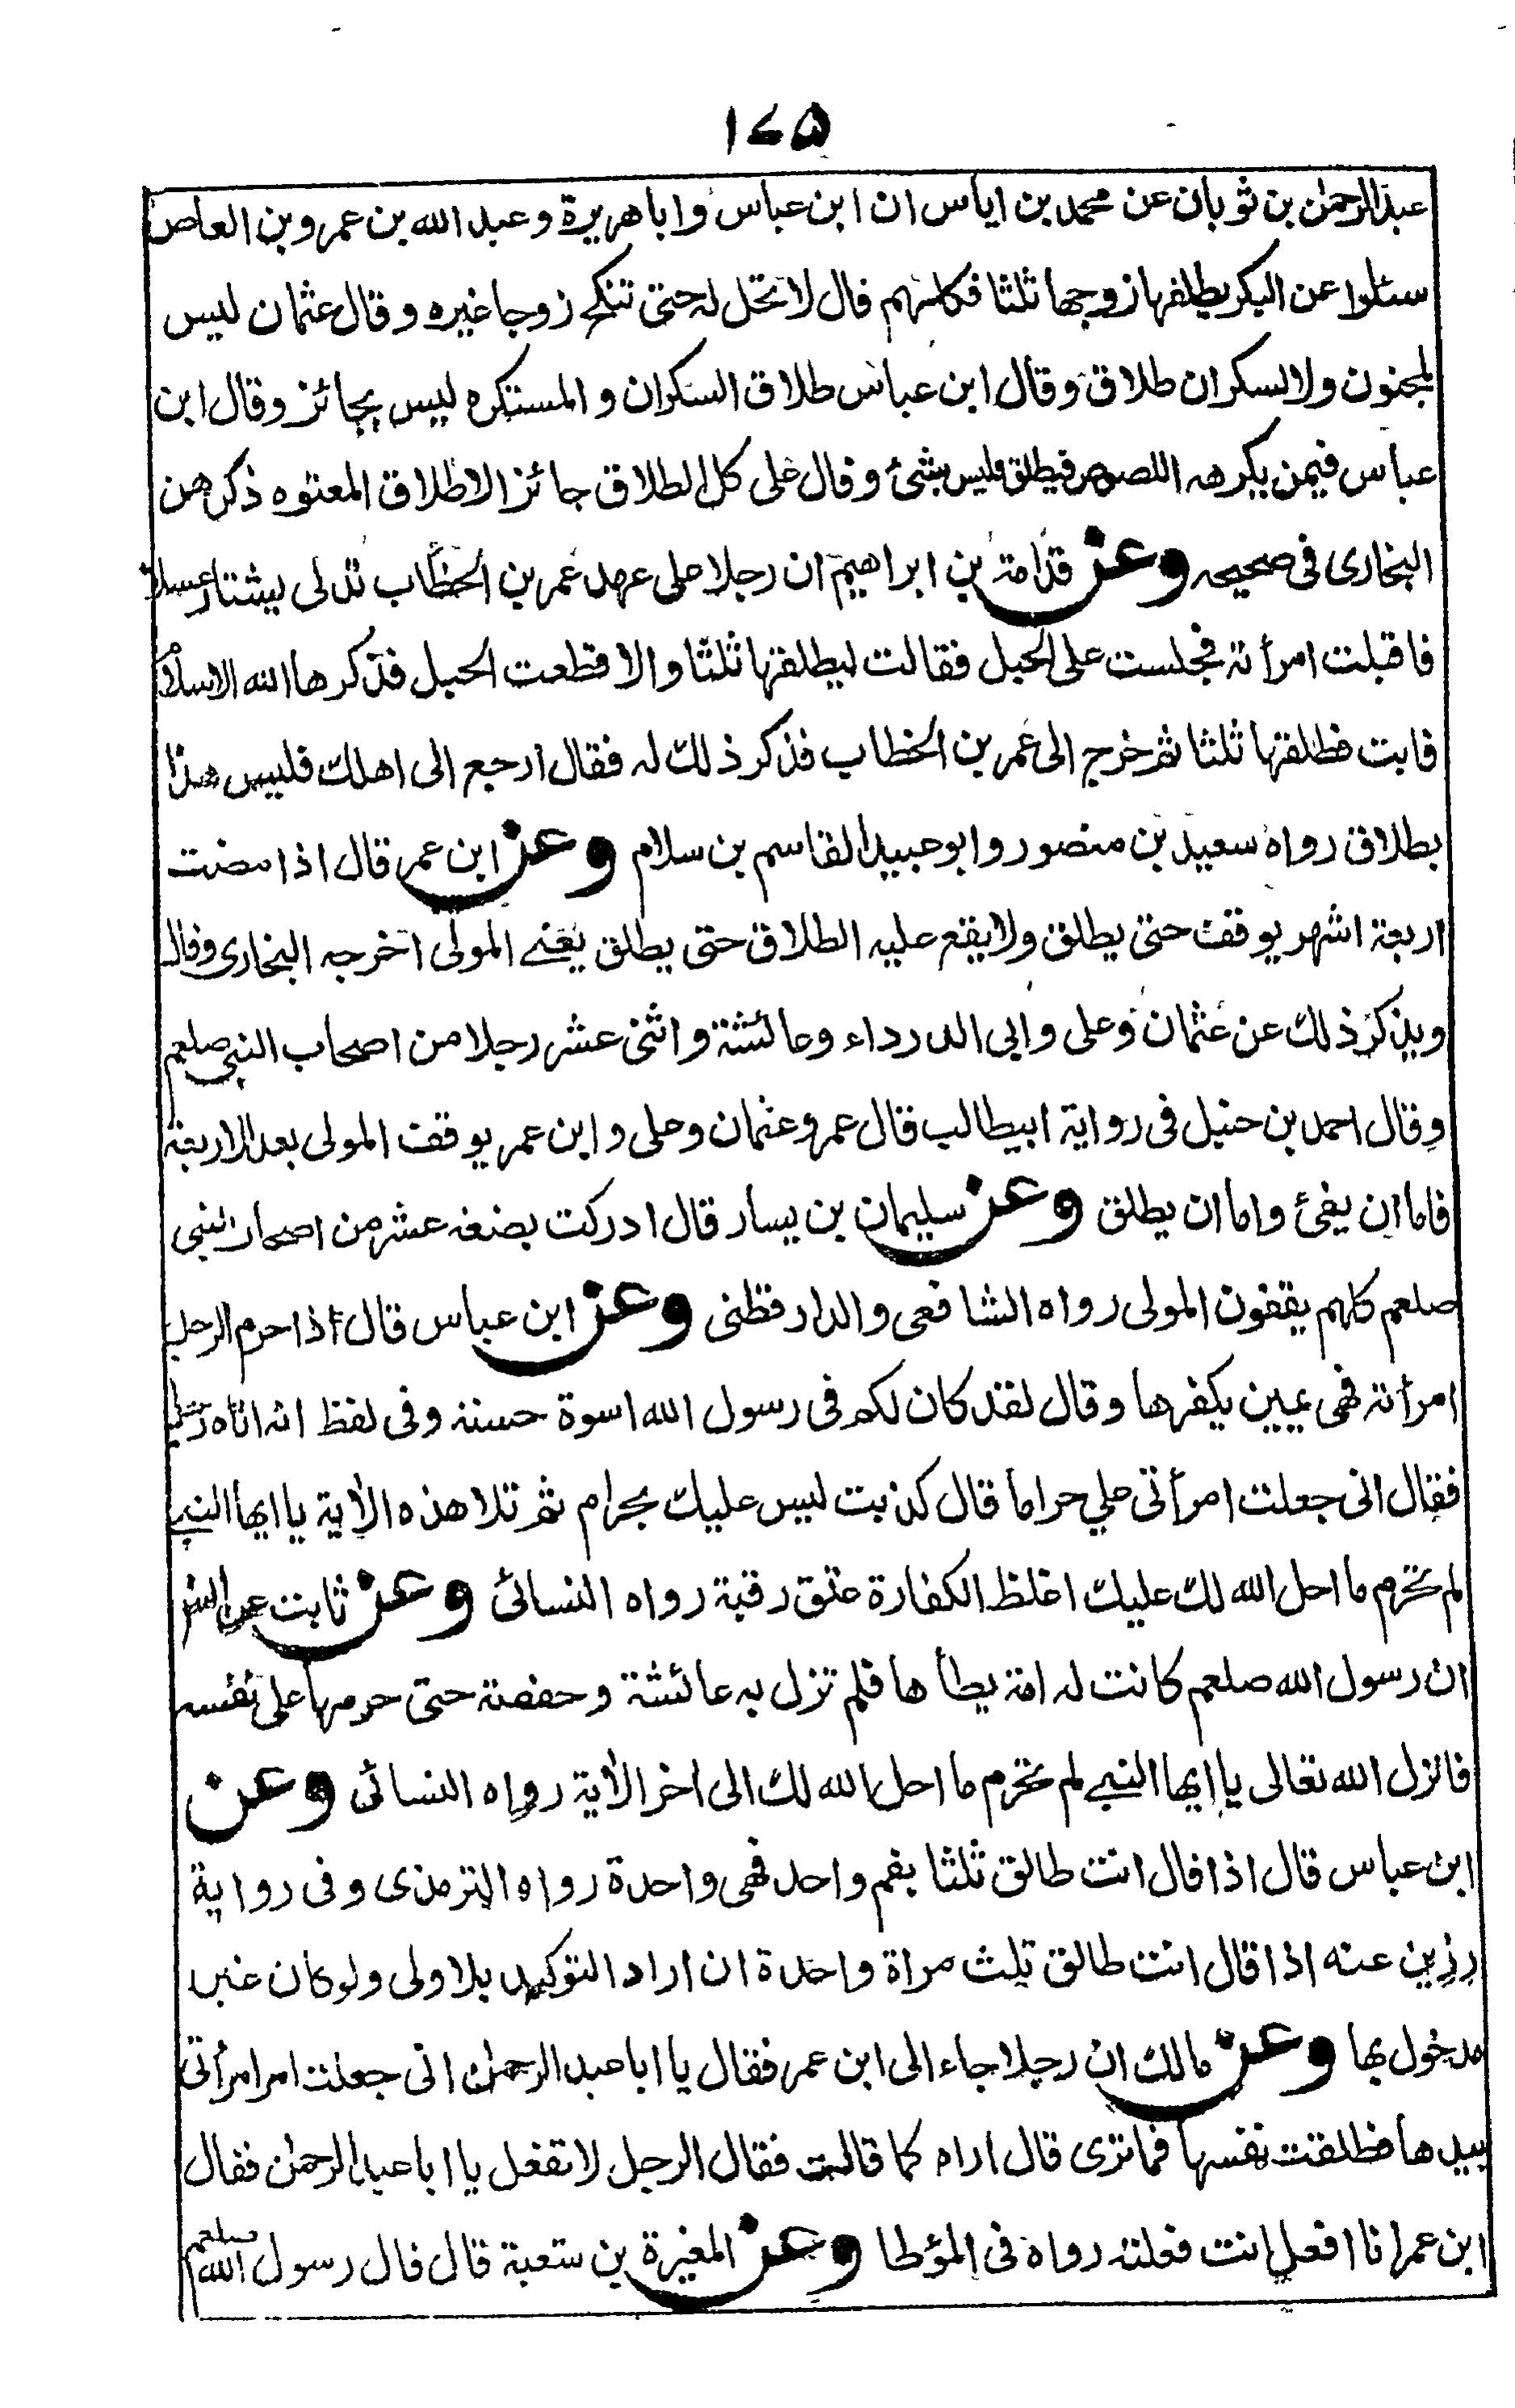 ١٧٥
عبدالرحمٰن بن ثوبان عن محمد بن اياس ان ابن عباس وابا هريرة وعبد الله بن عمرو بن العاص
سئلوا عن البكر يطلقها زوجها ثلثا فكلهم قال لا تحل له حتى تنكح زوجا غيره وقال عثمان ليس
لمجنون ولا لسكران طلاق وقال ابن عباس طلاق السكران والمستكره ليس بجائز وقال ابن
عباس فيمن يكرهه اللصوص فيطلق فليس بشئ وقال على كل الطلاق جائز الا طلاق المعتوه ذكرهن
البخارى فى صحيحه وعن قدامة بن ابراهيم ان رجلا على عهد عمر بن الخطاب تدلى يشتار عسلا
فاقبلت امرأته فجلست على الحبل فقالت ليطلقها ثلثا والا قطعت الحبل فذكرها الله والاسلام
فابت فطلقها ثلثا ثم خرج الى عمر بن الخطاب فذكر ذلك له فقال ارجع الى اهلك فليس هذا
بطلاق رواه سعيد بن منصور وابو عبيد القاسم بن سلام وعن ابن عمر قال اذا مضت
اربعة اشهر يوقف حتى يطلق ولا يقع عليه الطلاق حتى يطلق يعنے المولى اخرجه البخارى وقال
ويذكر ذلك عن عثمان وعلى وابى الدرداء وعائشة واثنى عشر رجلا من اصحاب النبى صلعم
وقال احمد بن حنبل فى رواية ابيطالب قال عمر وعثمان وعلى وابن عمر يوقف المولى بعد الاربعة
فاما ان يفئ واما ان يطلق وعن سليمان بن يسار قال ادركت بضعه عشر من اصحاب النبى
صلعم كلهم يقفون المولى رواه الشافعى والدارقطنى وعن ابن عباس قال اذا حرم الرجل
امرأته فهى يمين يكفرها وقال لقد كان لكم فى رسول الله اسوة حسنة وفى لفظ انه اتاه رجل
فقال انى جعلت امرأتى على حراما قال كذبت ليس عليك بحرام ثم تلا هذه الاٰية يا ايها النبے
لم تحرم ما احل الله لك عليك اغلظ الكفارة عتق رقبة رواه النسائى وعن ثابت عن انس
ان رسول الله صلعم كانت له امة يطأها فلم تزل به عائشة وحفصة حتى حرمها على نفسه
فانزل الله تعالى يا ايها النبے لم تحرم ما احل الله لك الى اٰخر الاٰية رواه النسائى وعن
ابن عباس قال اذا قال انت طالق ثلثا بفم واحد فهى واحدة رواه الترمذى وفى رواية
رزين عنه اذا قال انت طالق ثلث مراة واحدة ان اراد التوكيد بلاولى ولو كان غير
مدخول بها وعن مالك ان رجلا جاء الى ابن عمر فقال يا ابا عبد الرحمٰن انى جعلت امر امرأتى
بيدها فطلقت نفسها فما ترى قال اراه كما قالت فقال الرجل لا تفعل يا ابا عبد الرحمٰن فقال
ابن عمر انا افعل انت فعلته رواه فى المؤطا وعن المغيرة بن شعبة قال قال رسول الله صلعم